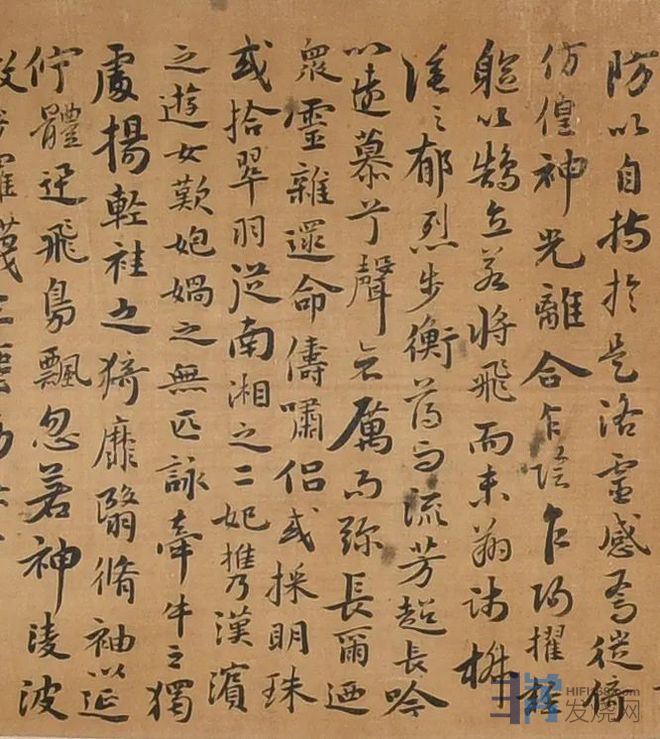 防以自持於是洛靈感焉徙倚
仿偟神光離合乍陰乍陽擢輕
軀以鵠立若將飛而未翔踐椒
塗之郁烈步衡薄而流芳超長吟
以遠慕兮聲哀厲而彌長爾迺
衆靈雜遝命儔嘯侶或採明珠
或拾翠羽從南湘之二妃攜漢濱
之遊女歎媧之無匹詠牽牛之獨
處揚輕袿之猗靡翳脩袖以延
佇體迅飛鳧飄忽若神淩波
发烧网